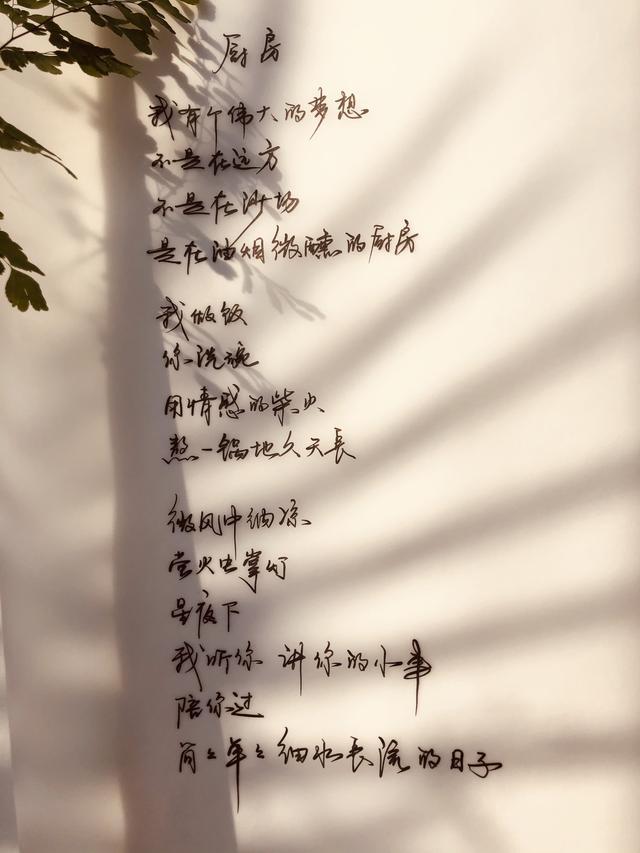 厨房
我有个伟大的梦想
不是在远方
不是在沙场
是在油烟微醺的厨房
我做饭
你洗碗
用情感的柴火
熬一锅地久天長
微风中纳凉
萤火虫掌灯
星夜下
我听你 讲你的小事
陪你过
简々单々细水長流的日子